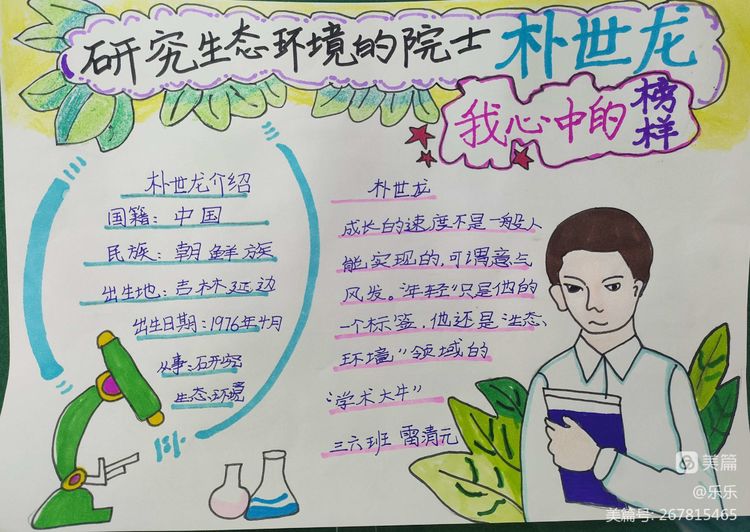 研究生态环境的院士 朴世龙
我心中的榜样
朴世龙介绍
国籍：中国
民族：朝鲜族
出生地：吉林延边
出生日期：1976年4月
从事：研究
生态、环境
朴世龙
成长的速度不是一般人
能实现的，可谓意气
风发。“年轻”只是他的
一个标签，他还是“生态、
环境”领域的
“学术大牛”
三六班 雷清元
美篇
@乐乐
美篇号: 267815465